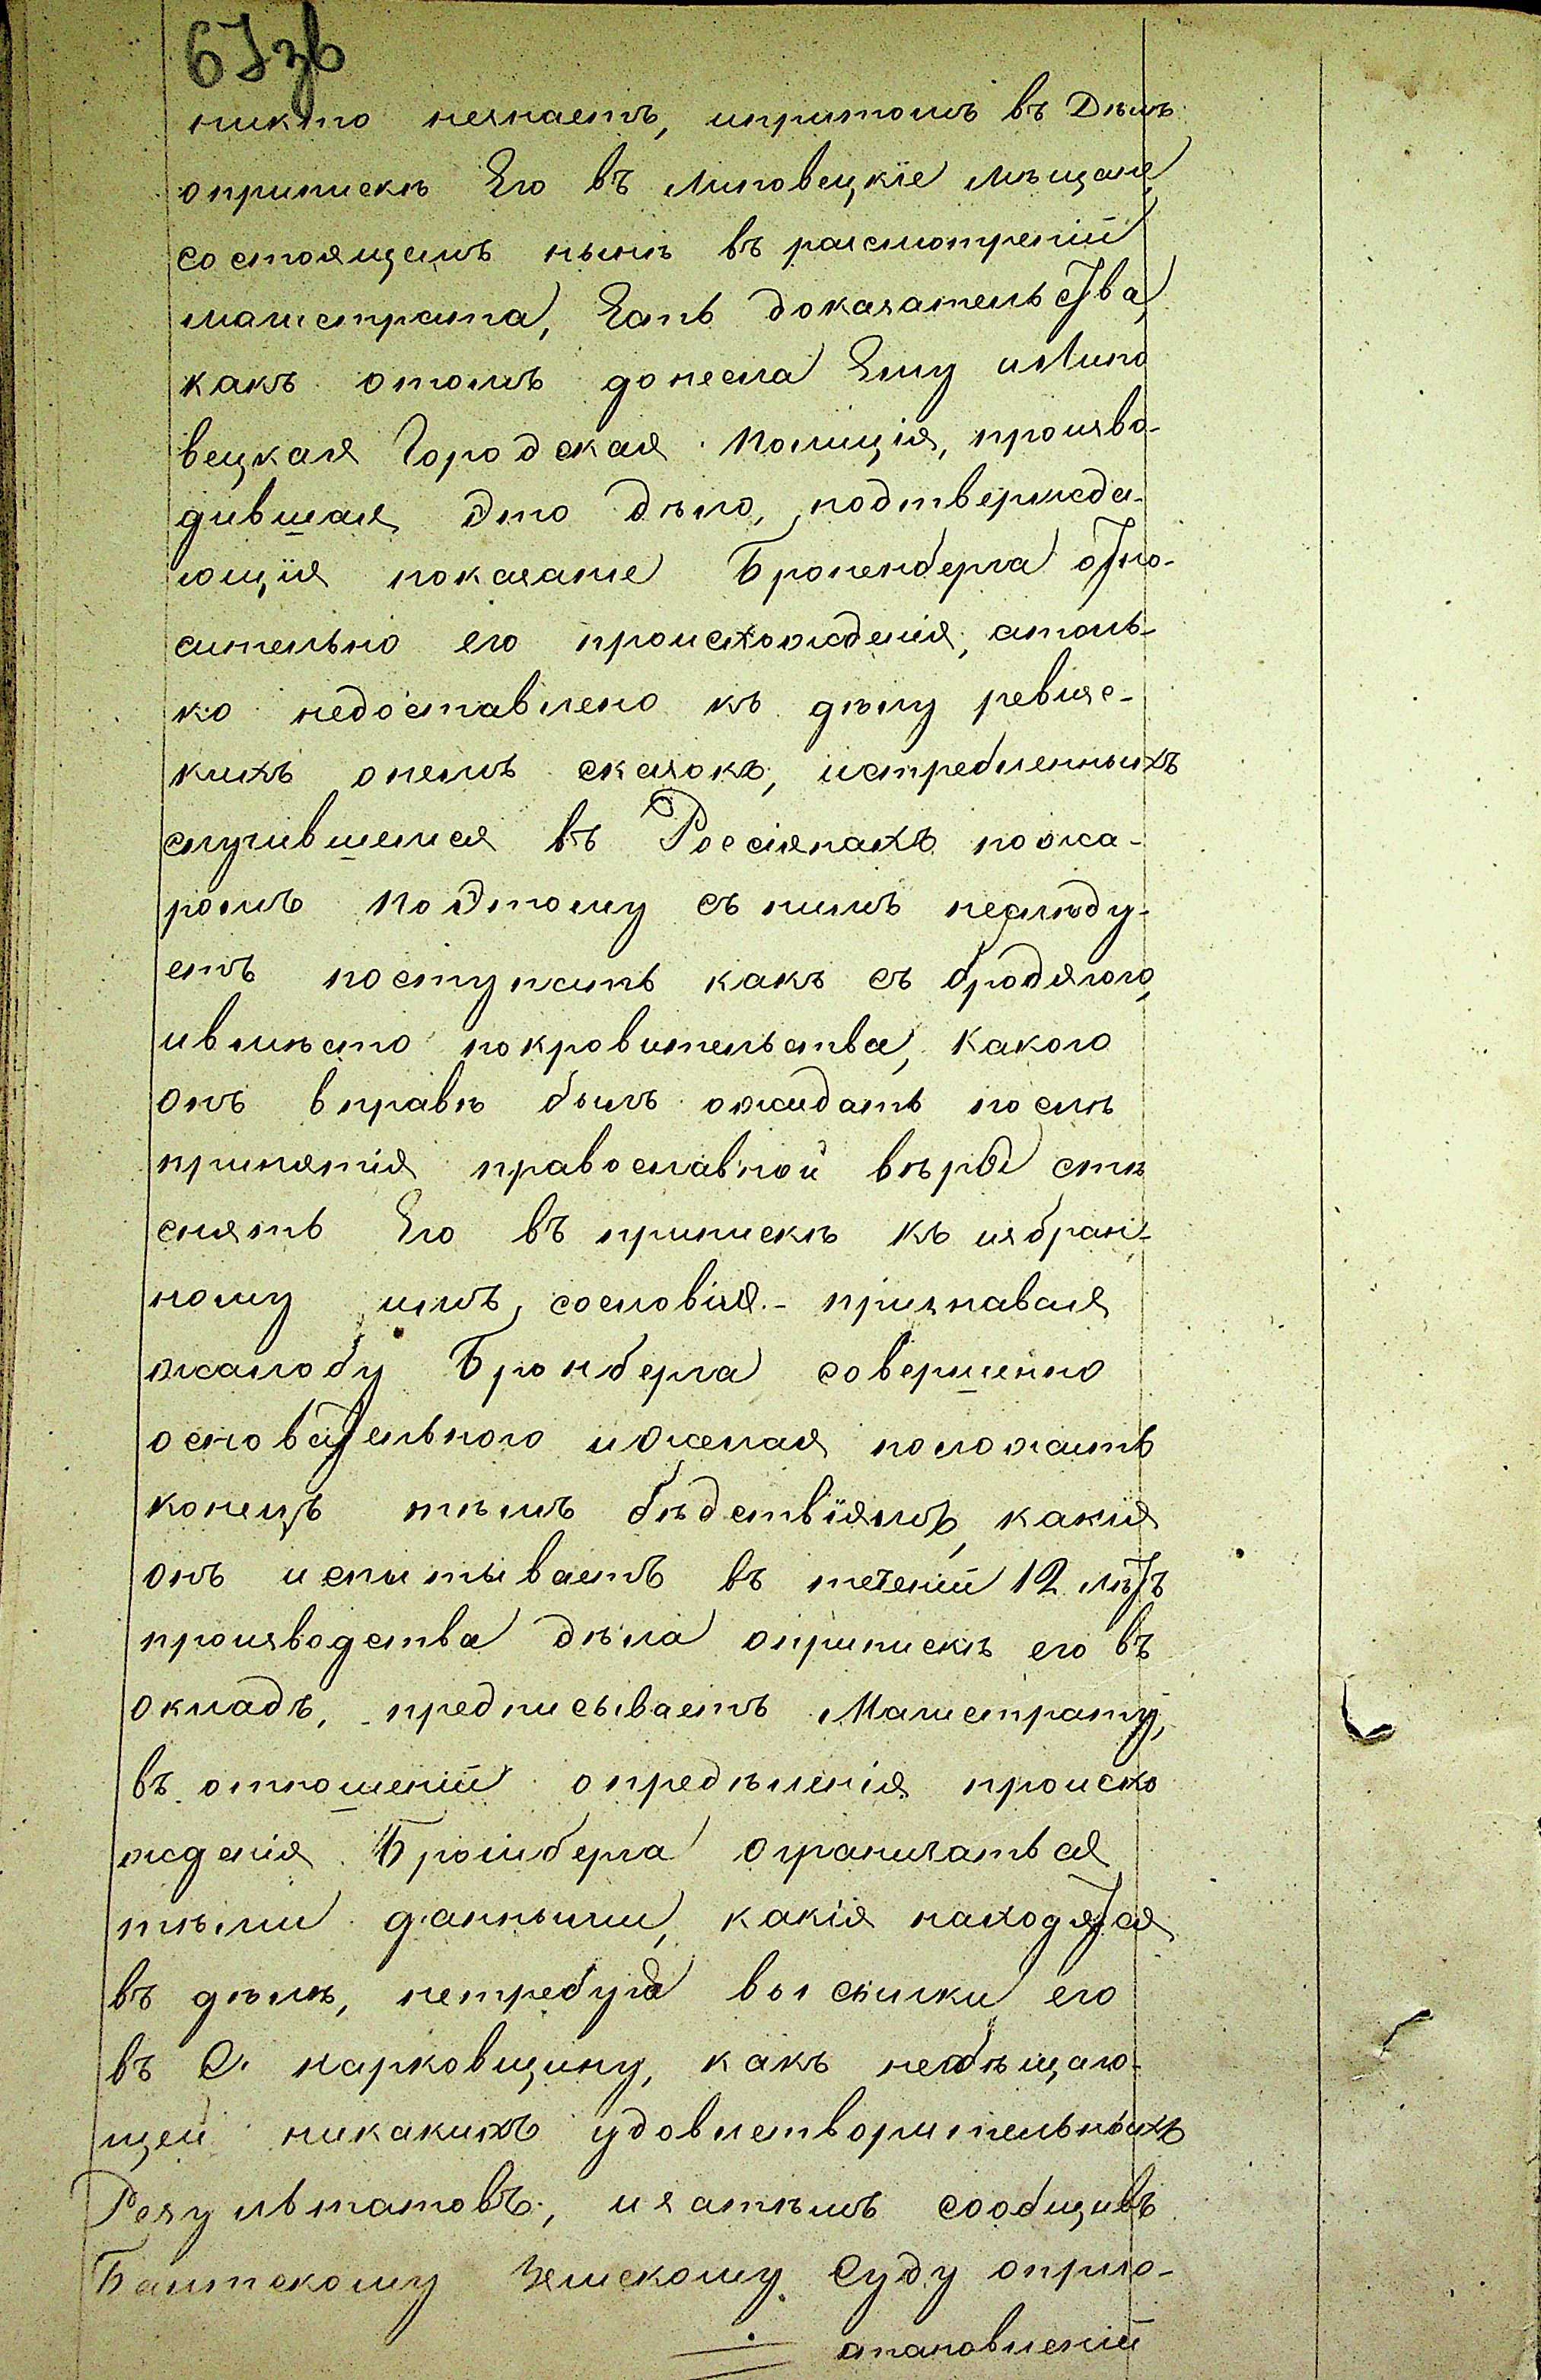 никто незнаетъ, ипритомъ въ Дѣлѣ
оприпискѣ Его въ Липовецкіе мѣщане,
состоящемъ нынѣ въ разсмотреніи
магистрата, Есть доказательства,
какъ отомъ донесла Ему иЛипо
вецкая Городская Полиція, произво-
дившая Это дѣло, подтвержда-
ющія показаніе Броненберга отно-
сительно его происхожденія, атоль-
ко недоставлено къ дѣлу ревизс-
кихъ онемъ сказокъ, истребленныхъ
случившемся въ Россіянахъ пожа-
ромъ Поэтому съ нимъ неслѣду-
етъ поступать какъ съ бродягою,
ивмѣсто покровительства, Какого
Онъ вправѣ былъ ожидать послѣ
принятія православной вѣры стѣ
снять Его въ припискѣ къ избран-
ному имъ сословія.- признавая
жалобу Бронберга совершенно
основательною ижелая положить
конецъ тѣмъ бѣдствіямъ, какія
онъ испытываетъ въ теченіи 12 лѣтъ
производства дѣла оприпискѣ его въ
окладъ, предписываетъ Магистрату,
въ отношеніи опредѣленія происхо
жденія Бронберга ограничаться
тѣми данными, какія находятся
въ дѣлѣ, нетребуя высылки его
въ С. Марковщину, какъ необѣщаю-
щей никакихъ удовлетворительныхъ
Результатовъ, изатѣмъ сообщивъ
Балтскому Земскому Суду опріо-
становленіи